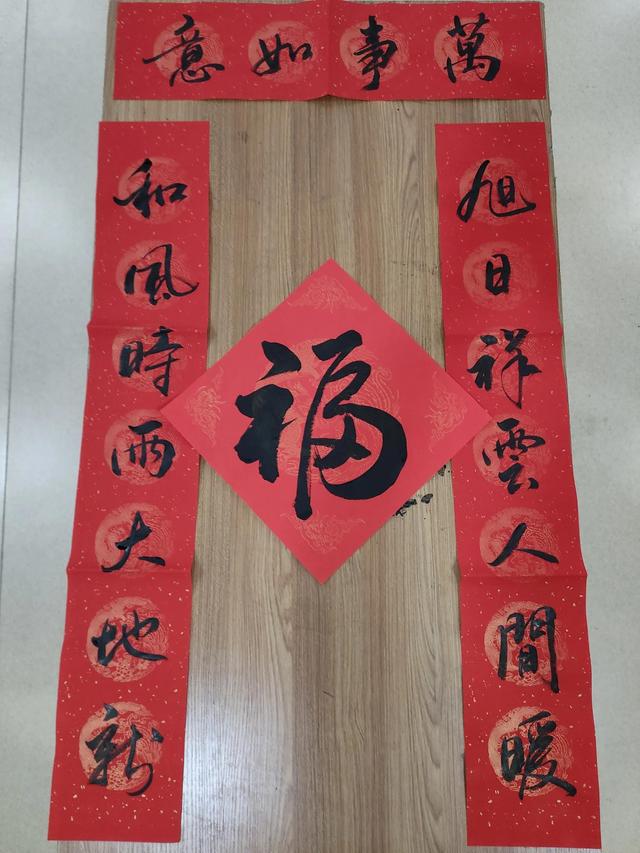 萬事如意
旭日祥雲人間暖
和風時雨大地新
福